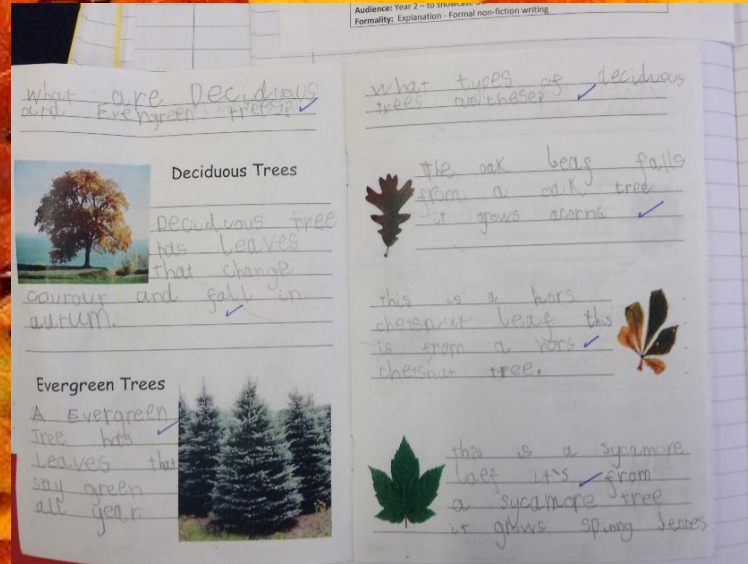 Audience: Year 2 – to showcase our
Formality: Explanation - Formal non-fiction writing
What are Deciduous
and Evergreen trees?
Deciduous Trees
Deciduous tree
has leaves
that change
courour and fall in
aurum.
Evergreen Trees
A Evergreen
Tree has
leaves that
say green
all year
What types of deciduous
trees are these?
the oak leaf falls
from a oak tree
it grows acorns
this is a hors
chetsnut leaf this
is from a hors
chetsnut tree.
this is a sycamore
laef it's from
a sycamore tree
it grows